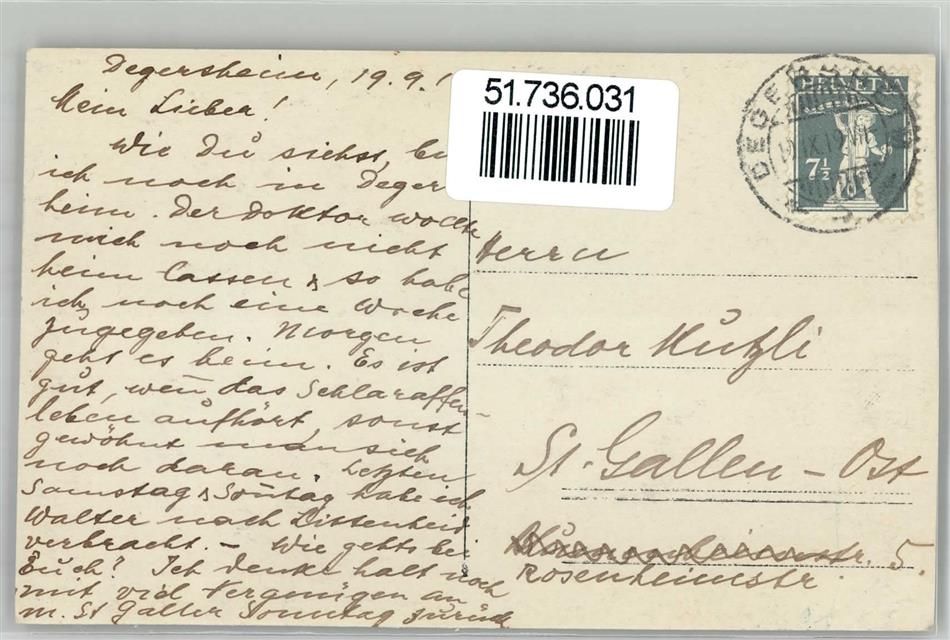 Degersheim, 19.9.1
Mein Lieber!
Wie Du siehst, bin
ich noch in Deger
heim. Der Doktor wollte
mich noch nicht
heim lassen & so habe
ich noch eine Woche
zugegeben. Morgen
geht es heim. Es ist
gut, wen̄ das Schlaraffen-
leben aufhört, sonst
gewöhnt man sich
noch daran. Letzten
Samstag & Son̄tag habe ich
Walter nach Littenheid
verbracht. – Wie gehts bei
Euch? Ich denke halt noch
mit viel Vergnügen an
m. St Galler Sonntag zurück
51.736.031
HELVETIA
7½
DEGERSHEIM
Herrn
Theodor Kutzli
St. Gallen – Ost
str. 5.
Rosenheimstr.